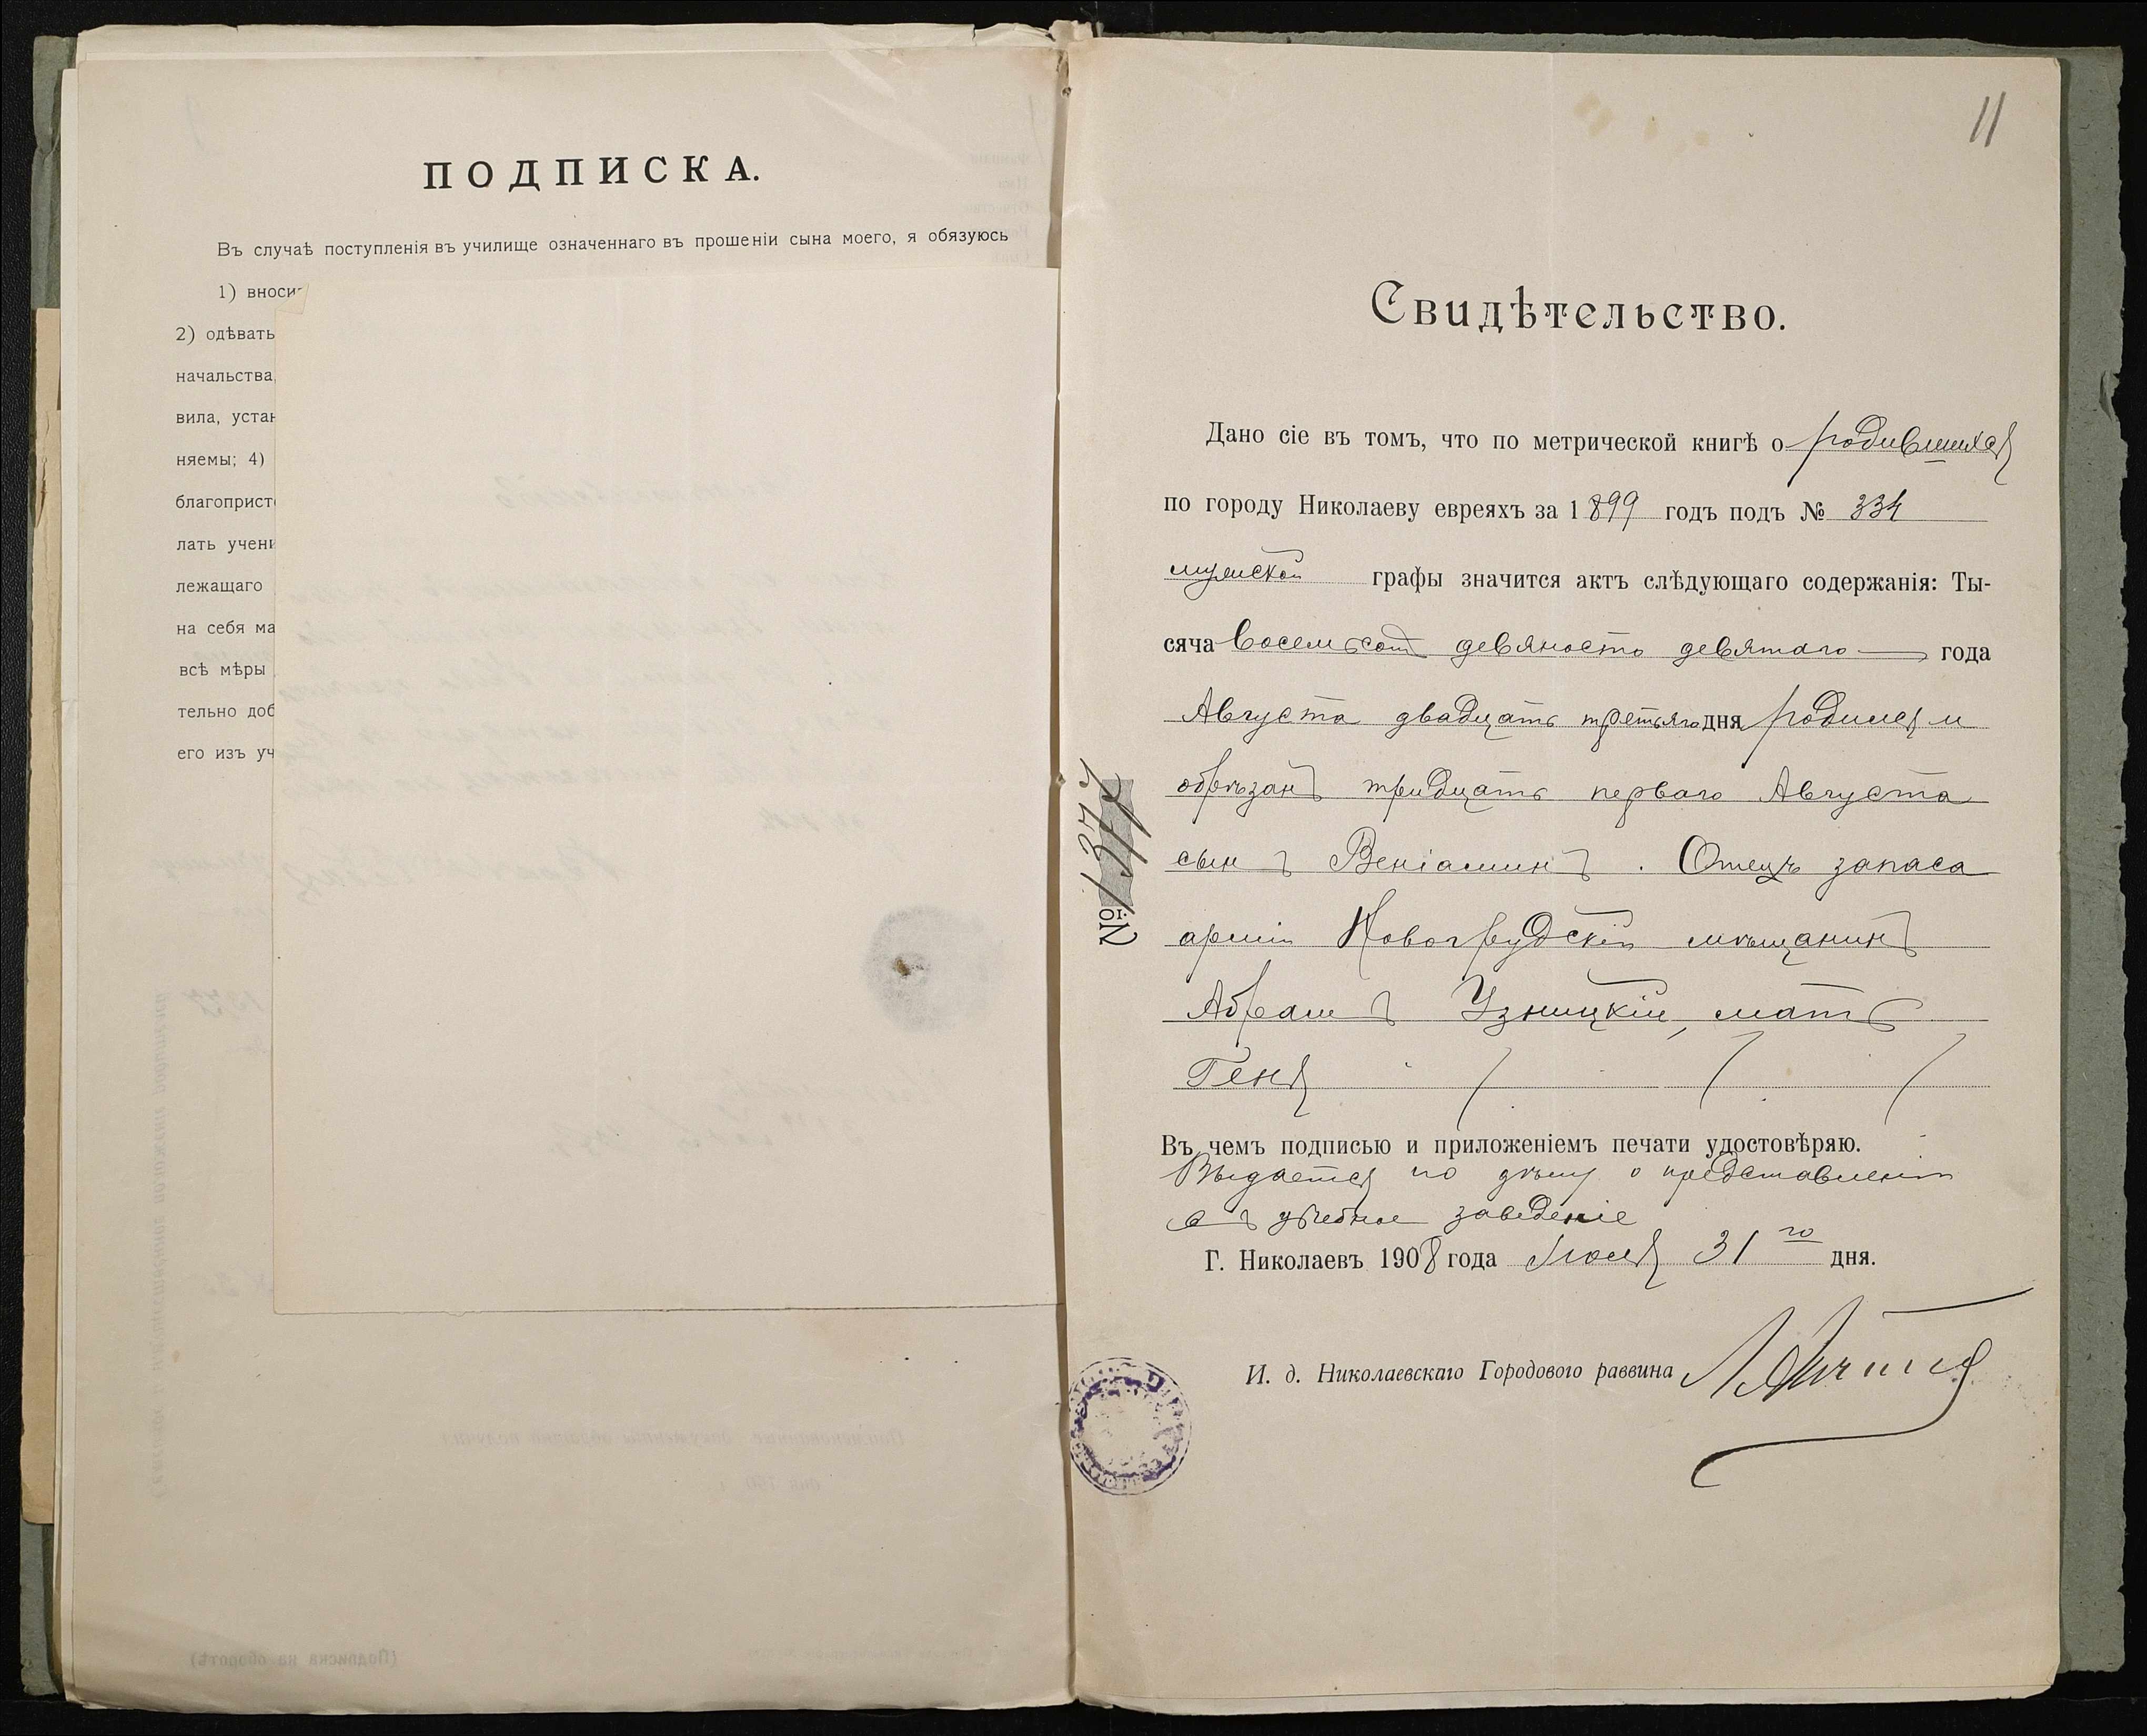 ПОДПИСКА.
Въ случаѣ поступленія въ училище означеннаго въ прошеніи сына моего, я обязуюсь
1) вноси
2) одѣвать
начальства,
вила, устан
няемы; 4)
благоприст
лать учени
лежащаго
на себя ма
всѣ мѣры
тельно доб
его изъ уч
11
Свидѣтельство.
Дано сіе въ томъ, что по метрической книгѣ о родившихся
по городу Николаеву евреяхъ за 1899 годъ подъ № 334
мужской графы значится актъ слѣдующаго содержанія: Ты-
сяча восемьсотъ девяносто девятаго года
Августа двадцать третьяго дня родился и
обрѣзанъ тридцать перваго Августа
сынъ Веніаминъ. Отецъ запаса
арміи Новогрудскій мѣщанинъ
Абрамъ Узницкій, мать
Геня
Въ чемъ подписью и приложеніемъ печати удостовѣряю.
Выдается по дѣлу о представленіи
въ учебное заведеніе
Г. Николаевъ 1908 года Іюля 31го дня.
И. д. Николаевскаго Городового раввина
№ 1377